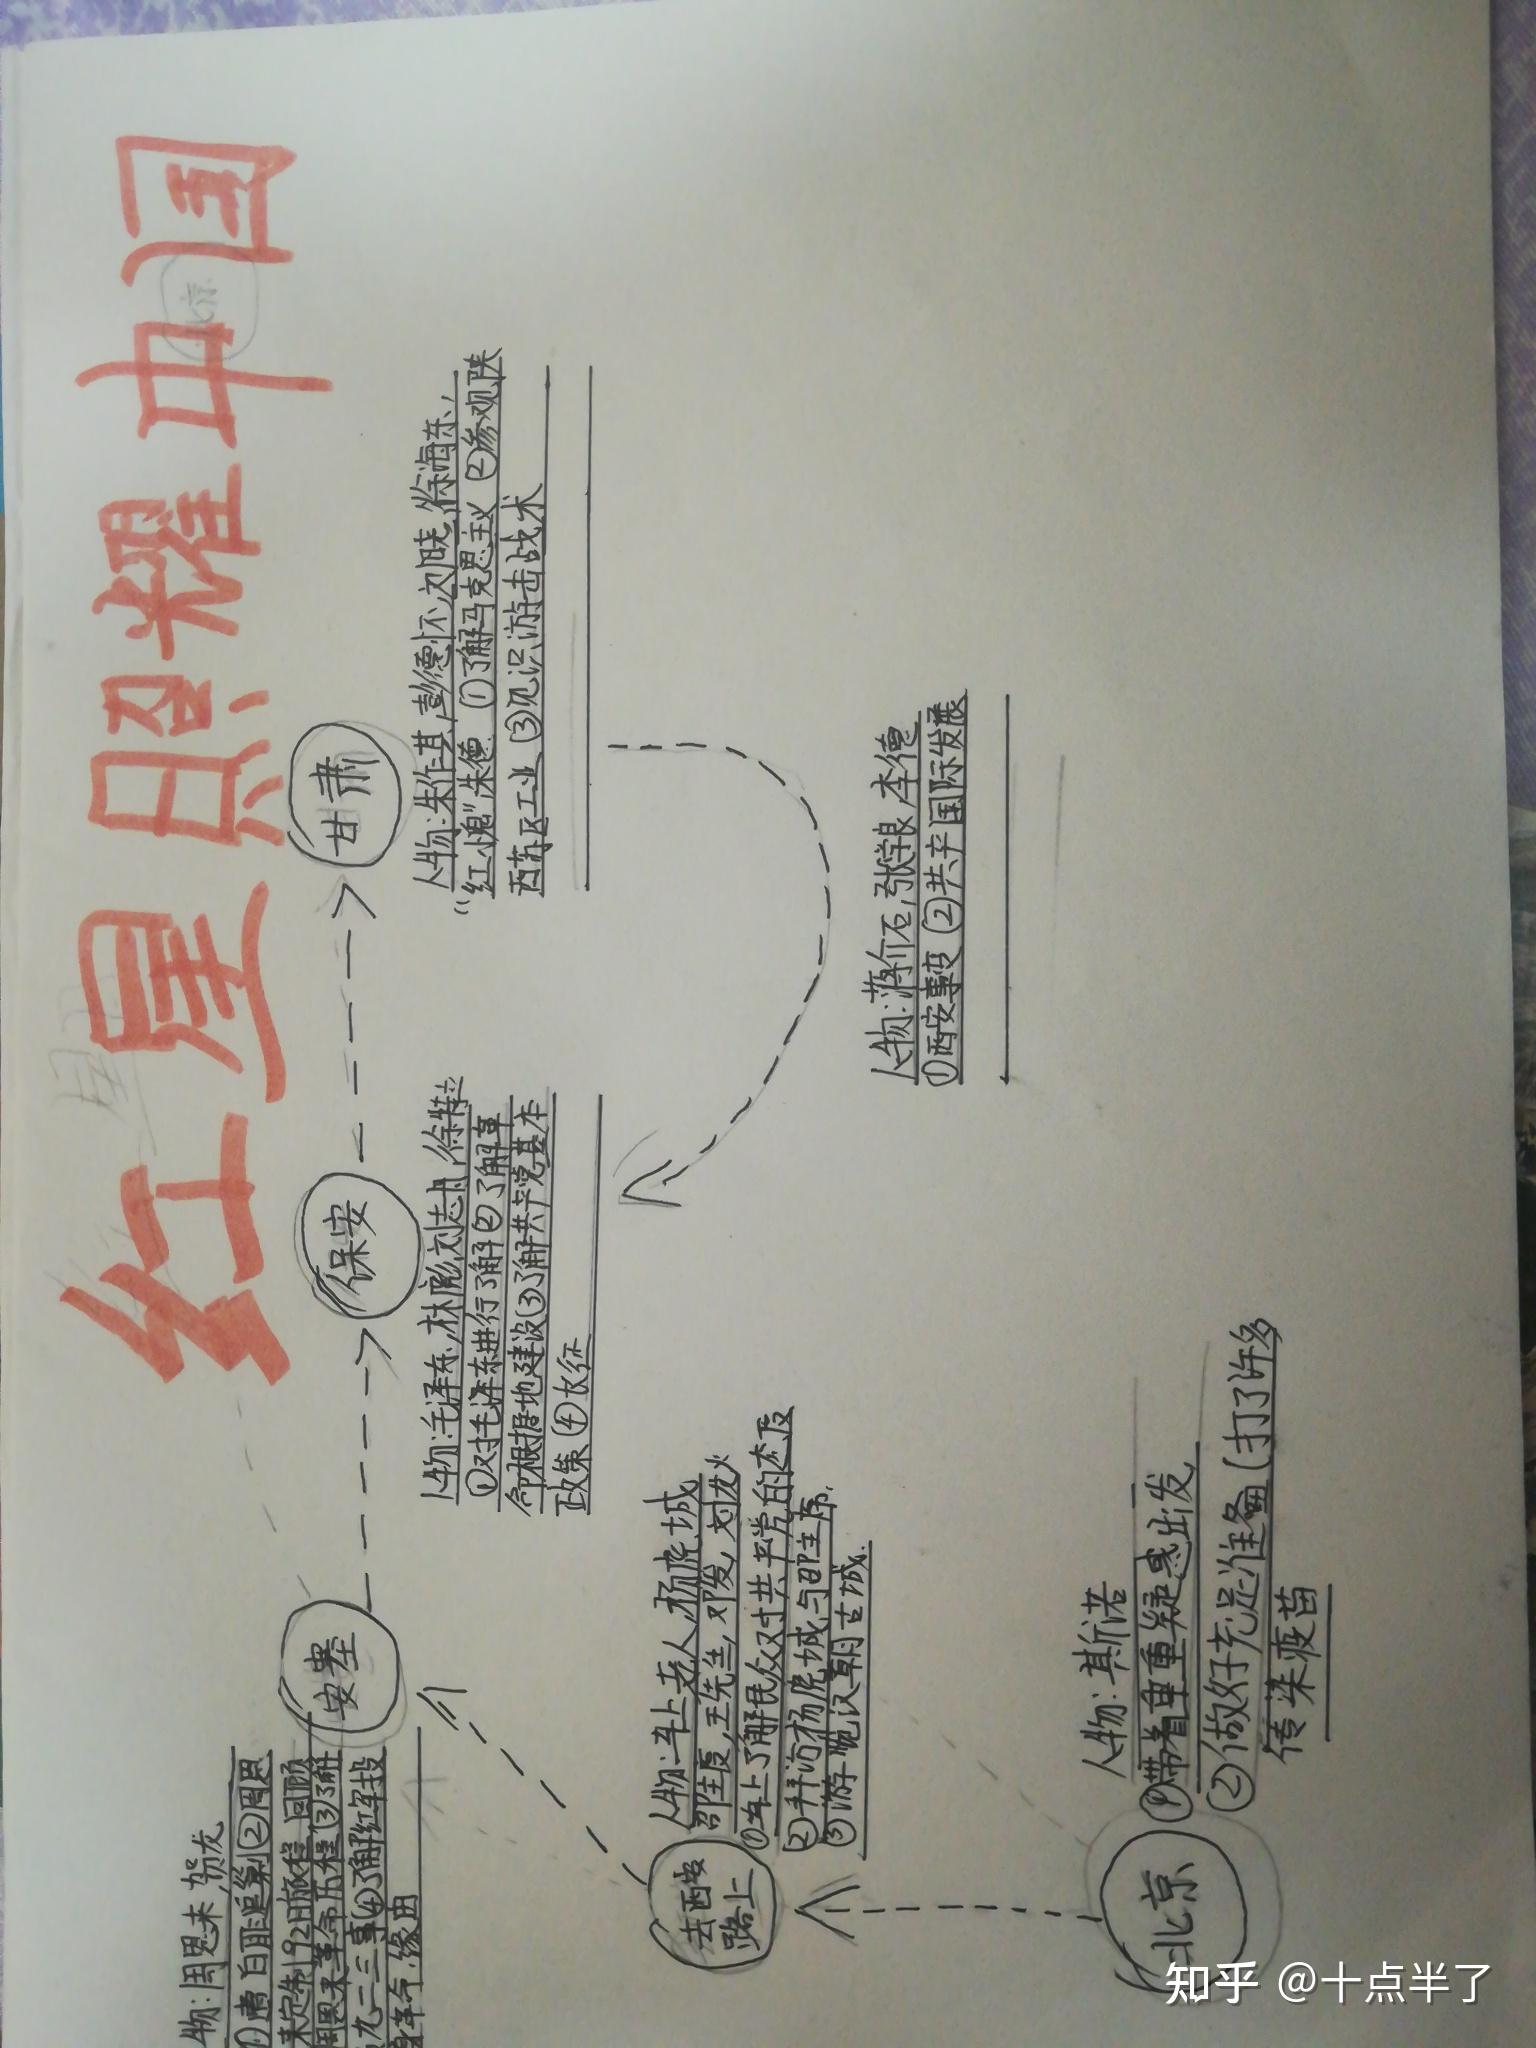 红星照耀中国
北京
人物:斯诺
①带着重重疑惑出发
②做好充足准备(打了许多
传染疫苗
去西安
路上
人物:车上老人,杨虎城
邵主度,王先生,邓发,刘龙火
①车上了解民众对共产党的态度
②拜访杨虎城与邵主席.
③游览汉朝古城.
安塞
物:周恩来,贺龙
①遭白匪追剿②周恩
来定制92日旅程,回顾
周恩来革命历程③了解
九二三事④了解红军投
身革命缘由
保安
人物:毛泽东,林彪,刘志丹,徐特立
①对毛泽东进行了解②了解革
命根据地建设③了解共产党基本
政策④长征
甘肃
人物:朱作其,彭德怀,刘晓,徐海东,
“红小鬼”朱德 ①了解马克思主义 ②参观陕
西苏区工业 ③见识游击战术
人物:蒋介石,张学良,李德
①西安事变 ②共产国际发展
知乎 @十点半了